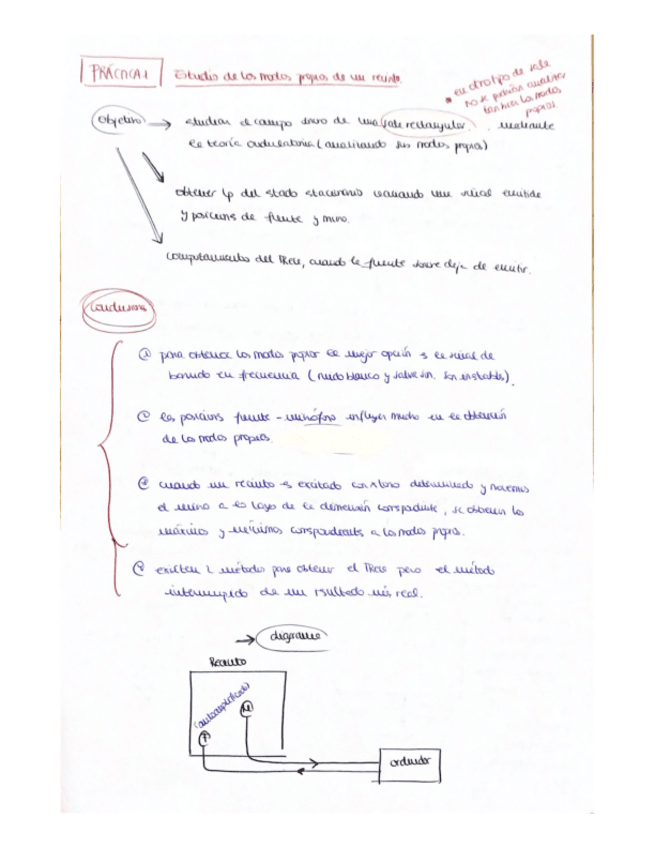 PRÁCTICA 1 Estudio de los modos propios de un recinto.
* en otro tipo de sala
no se podrían analizar
tan bien los modos
propios.
Objetivo → estudiar el campo sonoro de una sala rectangular, mediante
la teoría ondulatoria (analizando sus modos propios)
obtener Lp del estado estacionario variando una señal emitida
y posiciones de fuente y micro.
comportamiento del Trev, cuando la fuente sonora deja de emitir.
Conclusiones
① para obtener los modos propios la mejor opción es la señal de
barrido en frecuencia (ruido blanco y salve sin. son inestables).
② las posiciones fuente - micrófono influyen mucho en la obtención
de los modos propios.
cuando un recinto es excitado con 1 tono determinado y movemos
el micro a lo largo de la dimensión correspondiente, se obtienen los
máximos y mínimos correspondientes a los modos propios.
existen 2 métodos para obtener el Trev pero el método
interrumpido da un resultado más real.
→ diagrama
Recinto
(autoamplificado)
M
F
ordenador